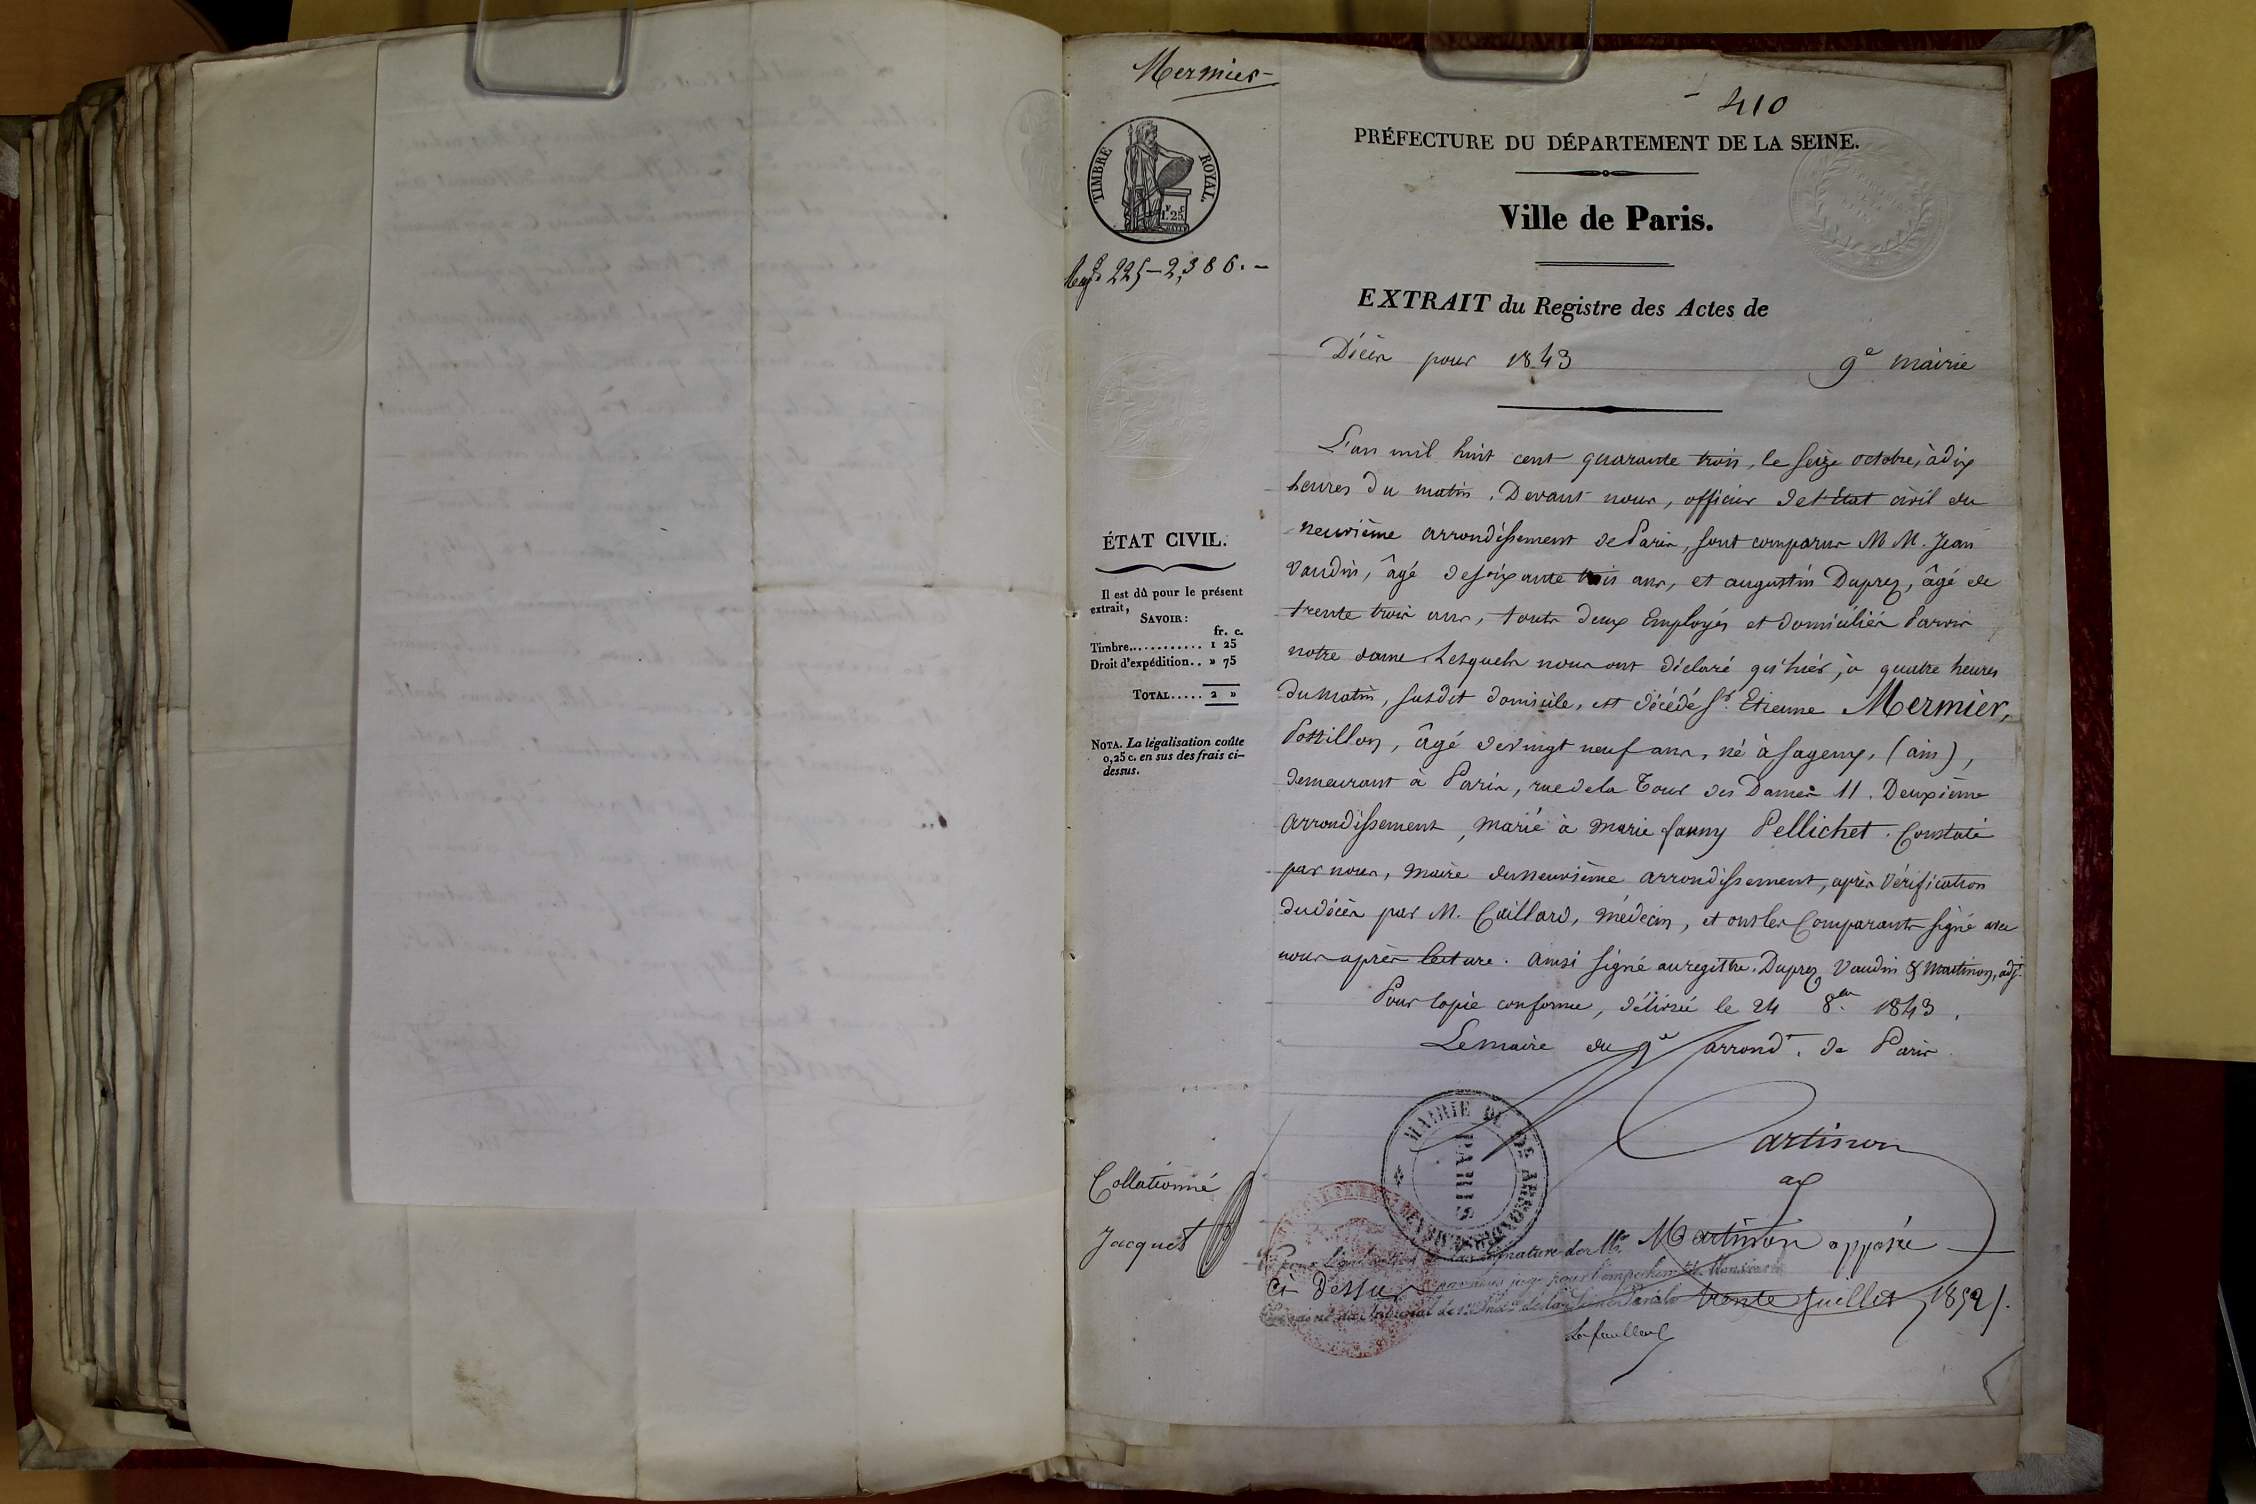 Mermier
410
PRÉFECTURE DU DÉPARTEMENT DE LA SEINE.
TIMBRE ROYAL.
Ville de Paris.
225-2,386.-
EXTRAIT du Registre des Actes de
Décès pour 1843 9e Mairie
L'an mil huit cent quarante trois, le seize octobre, à dix
heures du matin. Devant nous, officier de l'Etat civil du
neuvième arrondissement de Paris, sont comparus M M. Jean
Vaudin, âgé de soixante trois ans, et augustin Duprez, âgé de
trente trois ans, touts deux Employés et domiciliés Parvis
notre dame. Lesquels nous ont déclaré qu'hier, à quatre heures
du matin, susdit domicile, est décédé Sr. Etienne Mermier,
Postillon, âgé de vingt neuf ans, né à Sageny, (ain),
demeurant à Paris, rue de la Tour des Dames 11. Deuxième
arrondissement, marié à marie fanny Pellichet. Constaté
par nous, Maire du neuvième arrondissement, après Vérification
du décès par M. Caillard, médecin, et ont les Comparants signé avec
nous après lecture. ainsi signé au registre. Duprez Vaudin & Martinon, adjt.
Pour Copie conforme, délivrée le 24 8bre 1843.
Le maire du 9e arrondt. de Paris
ÉTAT CIVIL.
Il est dû pour le présent
extrait,
SAVOIR:
fr. c.
Timbre............ 1 25
Droit d'expédition.. » 75
TOTAL..... 2 »
NOTA. La légalisation coûte
0,25 c. en sus des frais ci-
dessus.
MAIRIE DU ARRONDISSEMENT
PARIS
Martinon
Collationné
Jacquet
signature de Mr. Martinon apposée
ci Dessus par nous juge pour l'empechemt de Monsieur le
trente Juillet 185